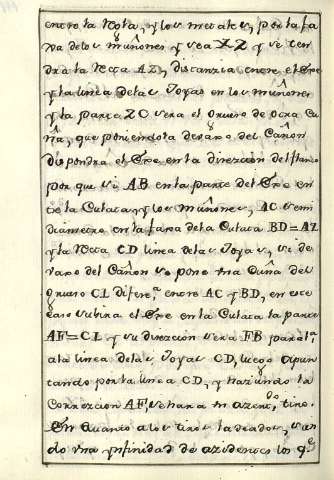 entre la Vola, y los metales, por la fa
xa de los muñones y sea XZ y se ten
dra la recta AZ, distanzia entre el Exe
y la linea de las Joyas en los muñones
y la parte ZC sera el grueso de otra Cu
ña, que poniendola devaxo del Cañon
dispondra el Exe en la direzion del flanco
por que si AB en la parte del Exe en
tre la Culata y los muñones, AC semi
diametro en la faxa de la Culata BD=AZ
y la recta CD linea de las Joyas, si de
vaxo del Cañon se pone una Cuña del
grueso CL difer.ª entre AC y BD, en este
caso subira el Exe en la Culata la parte
AF=CL y su direzion sera FB paral.ª
a la linea de las Joyas CD, luego apun
tando por la linea CD, y haziendo la
Correzion AF, se hara un azert.do tiro.
En quanto a los tiros ladeados, sien
do una ynfinidad de azidentes los q.e